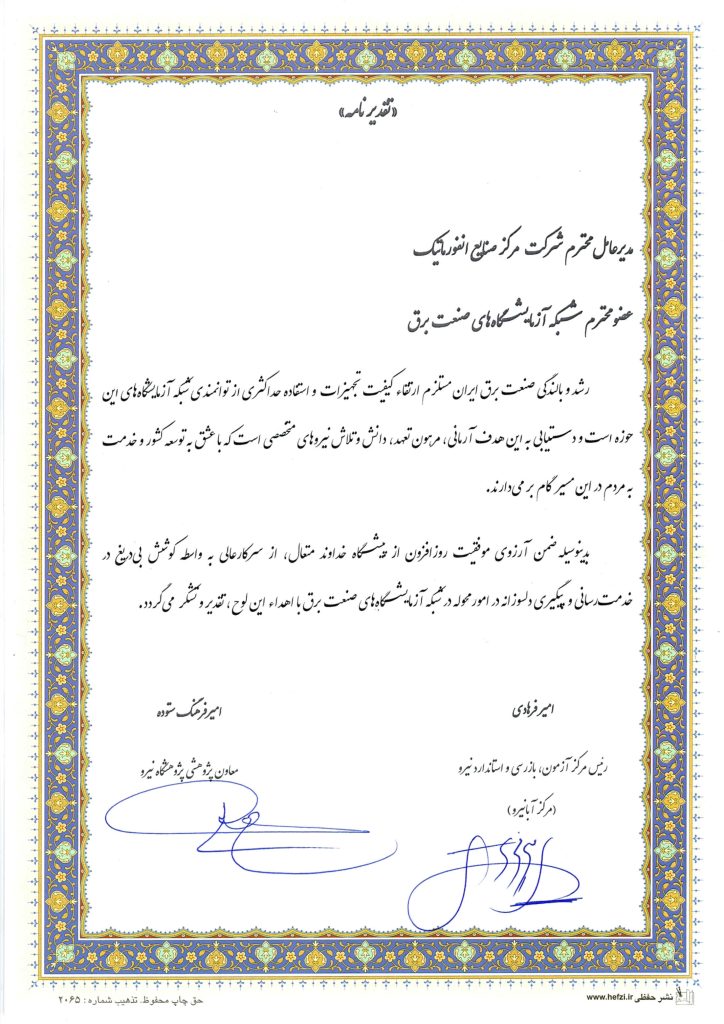 «تقدیر نامه»
مدیرعامل محترم شرکت مرکز صنایع انفورماتیک
عضو محترم شبکه آزمایشگاه‌های صنعت برق
رشد و بالندگی صنعت برق ایران مستلزم ارتقاء کیفیت تجهیزات و استفاده حداکثری از توانمندی شبکه آزمایشگاه‌های این
حوزه است و دستیابی به این هدف آرمانی، مرهون تعهد، دانش و تلاش نیروهای متخصصی است که با عشق به توسعه کشور و خدمت
به مردم در این مسیر گام بر می‌دارند.
بدینوسیله ضمن آرزوی موفقیت روزافزون از پیشگاه خداوند متعال، از سرکارعالی به واسطه کوشش بی‌دریغ در
خدمت‌رسانی و پیگیری دلسوزانه در امور محوله در شبکه آزمایشگاه‌های صنعت برق با اهداء این لوح، تقدیر و تشکر می‌گردد.
امیر فرهادی
امیرفرهنگ ستوده
رئیس مرکز آزمون، بازرسی و استاندارد نیرو
معاون پژوهشی پژوهشگاه نیرو
(مرکز آبانیرو)
نشر حفظی www.hefzi.ir
حق چاپ محفوظ. تذهیب شماره : ۲۰۶۵